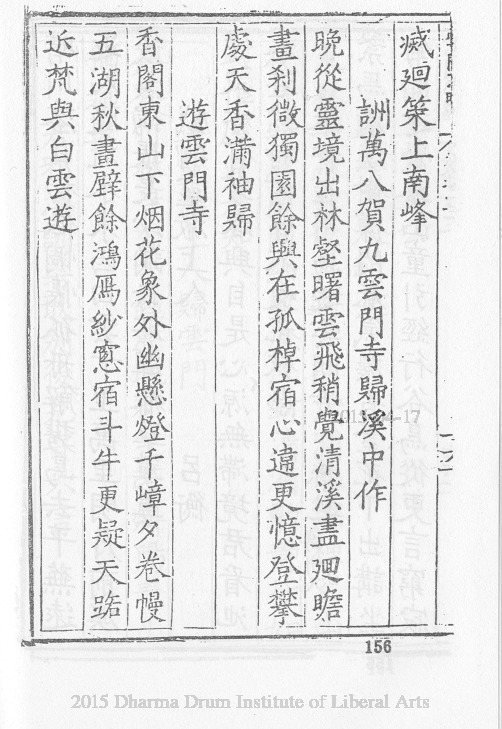 瘢廻策上南峰
詶萬八賀九雲門寺歸溪中作
晚從靈境出林壑曙雲飛稍覺清溪盡廻瞻
畫刹微獨園餘興在孤棹宿心違更憶登攀
處天香滿袖歸
遊雲門寺
香閣東山下烟花象外幽懸燈千嶂夕卷幔
五湖秋畫壁餘鴻鴈紗窻宿斗牛更疑天路
近梵與白雲遊
156
2015 Dharma Drum Institute of Liberal Arts